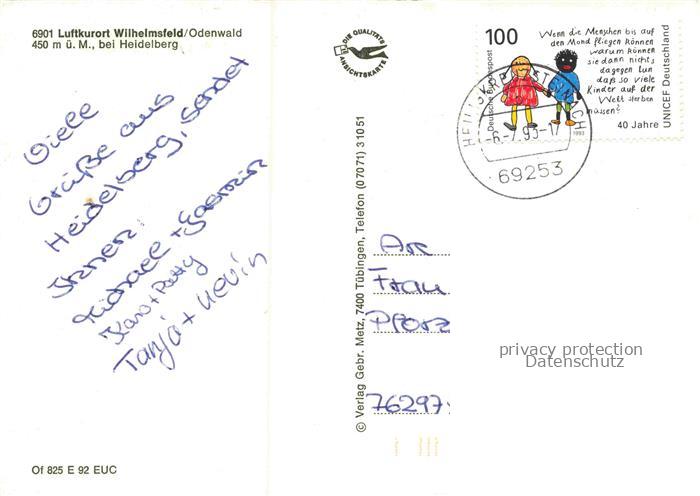 6901 Luftkurort Wilhelmsfeld/Odenwald
450 m ü. M., bei Heidelberg
Viele
Grüße aus
Heidelberg, sendet
Ihnen:
Michael + Yasmin
Karo + Patty
Tanja + Kevin
Of 825 E 92 EUC
DIE QUALITÄTS
ANSICHTSKARTE
© Verlag Gebr. Metz, 7400 Tübingen, Telefon (07071) 31051
100
Deutsche Bundespost
Wenn die Menschen bis auf
den Mond fliegen können
warum können
sie dann nichts
dagegen tun
daß so viele
Kinder auf der
Welt sterben
müssen?
40 Jahre
UNICEF Deutschland
1993
-6.-7.93-17
69253
An
Frau
Pforz
76297
privacy protection
Datenschutz